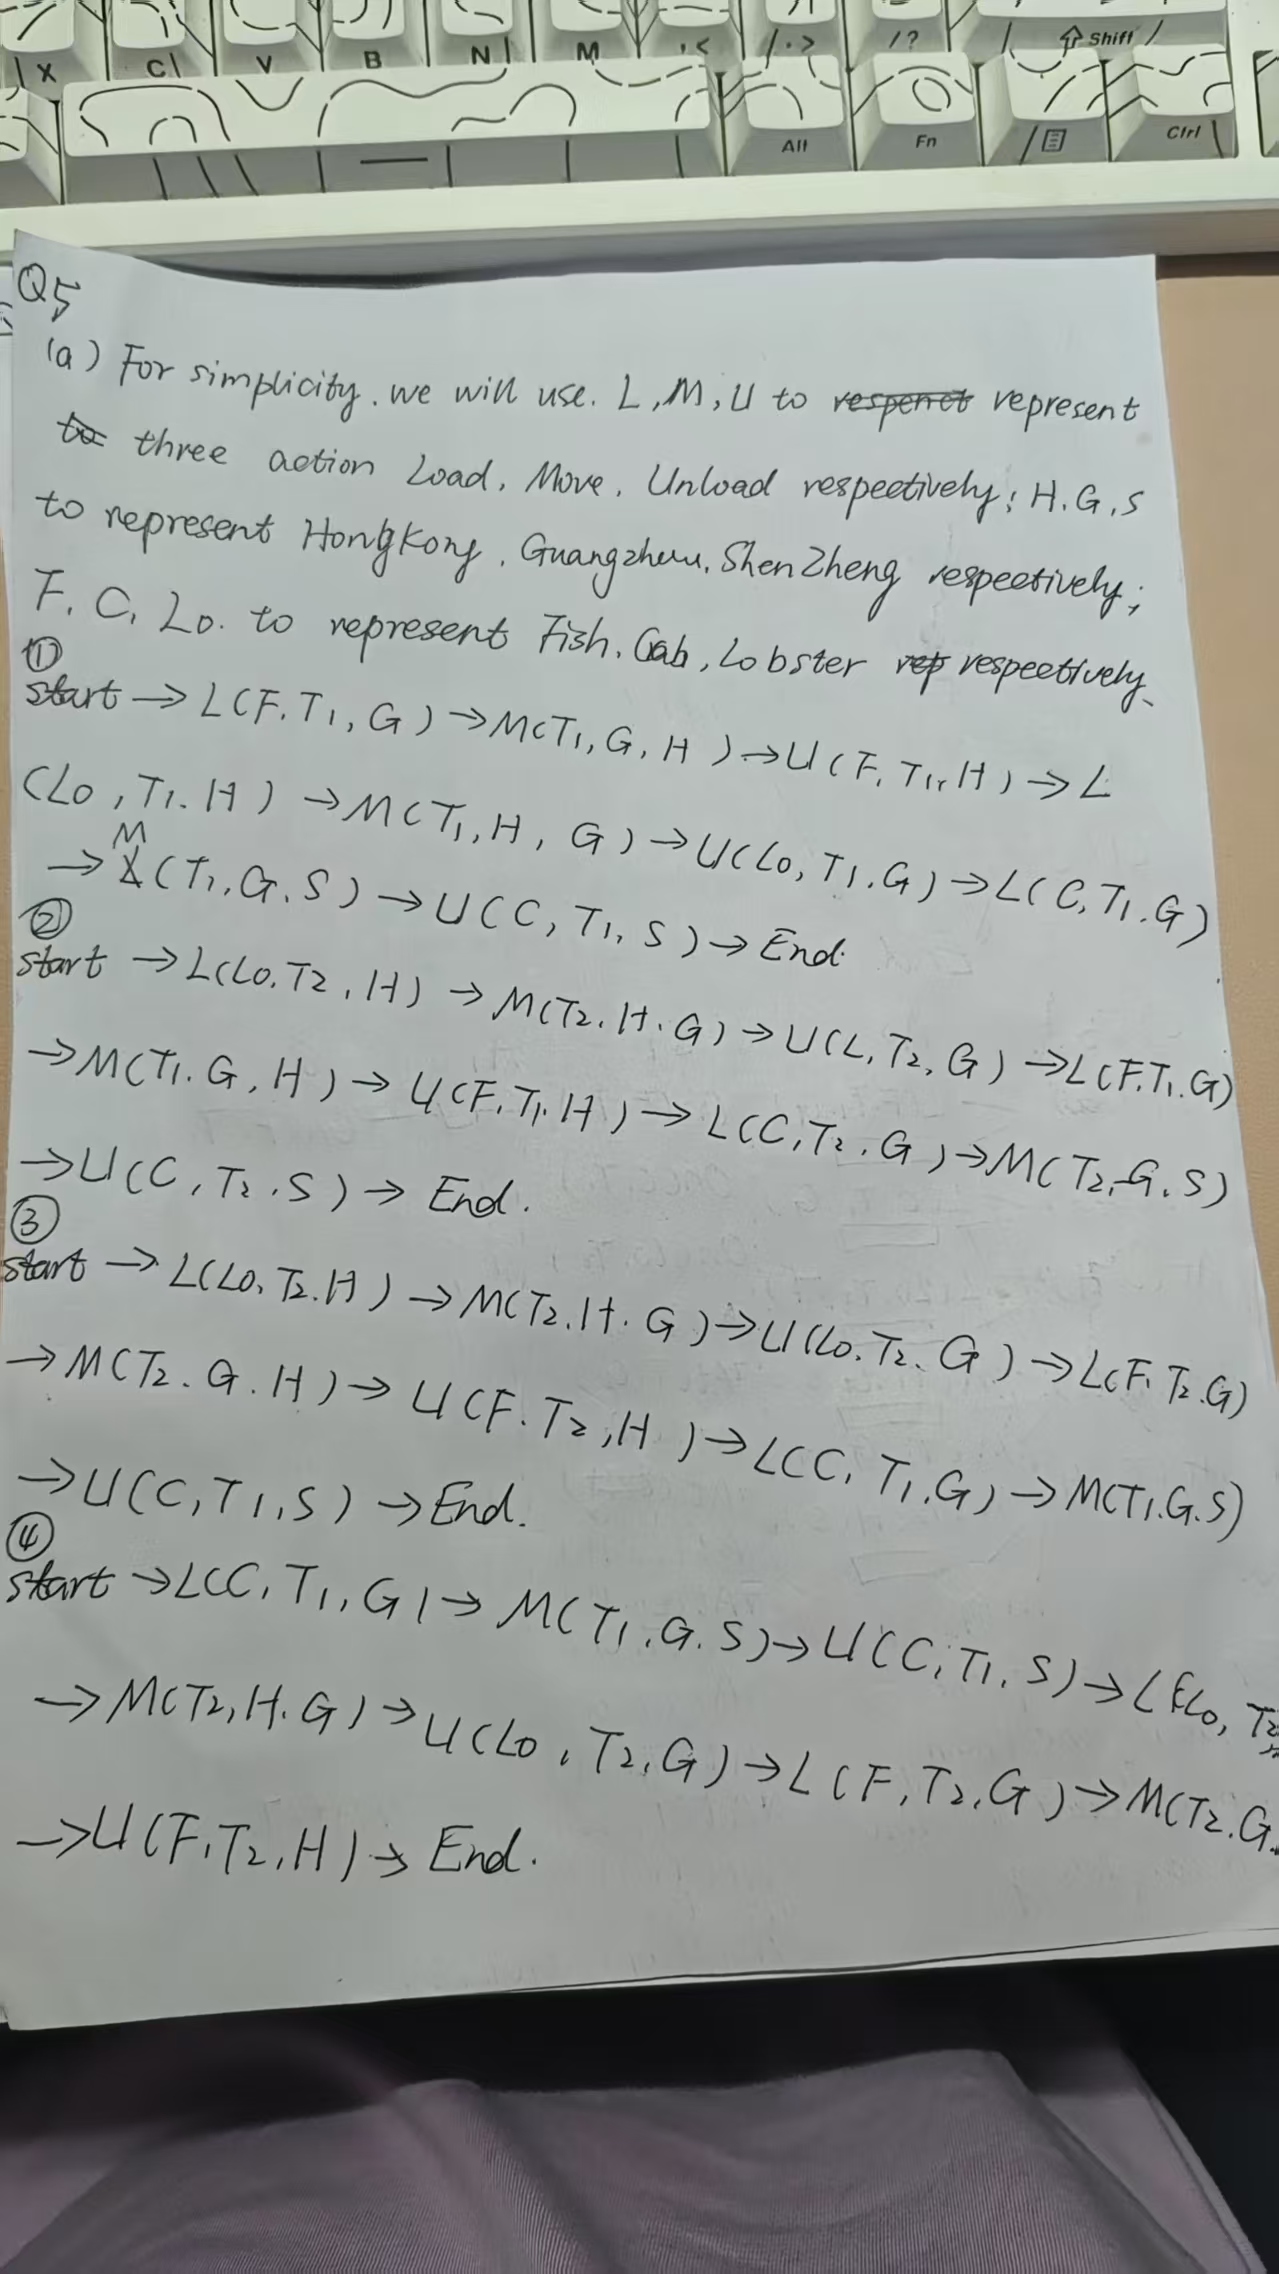 X C V B N M , < / . > / ? Shift /
Alt Fn Ctrl
Q5
(a) For simplicity. we will use. L, M, U to respenct represent
to three action Load, Move, Unload respectively; H. G. S
to represent HongKong, Guangzhou, ShenZheng respectively;
F. C, Lo. to represent Fish. Crab, Lobster rep respectively.
①
start → L(F. T1, G) → M(T1, G, H) → U(F, T1, H) → L
(Lo, T1. H) → M(T1, H, G) → U(Lo, T1. G) → L(C, T1. G)
→ M(T1. G. S) → U(C, T1, S) → End.
②
start → L(Lo. T2, H) → M(T2. H. G) → U(L, T2, G) → L(F. T1. G)
→ M(T1. G, H) → U(F, T1. H) → L(C, T2. G) → M(T2. G. S)
→ U(C, T2. S) → End.
③
start → L(Lo, T2. H) → M(T2. H. G) → U(Lo. T2. G) → L(F. T2. G)
→ M(T2. G. H) → U(F. T2, H) → L(C, T1. G) → M(T1. G. S)
→ U(C, T1, S) → End.
④
start → L(C, T1, G) → M(T1. G. S) → U(C, T1, S) → L(Lo, T2,
→ M(T2, H. G) → U(Lo, T2, G) → L(F, T2, G) → M(T2. G.
→ U(F, T2, H) → End.